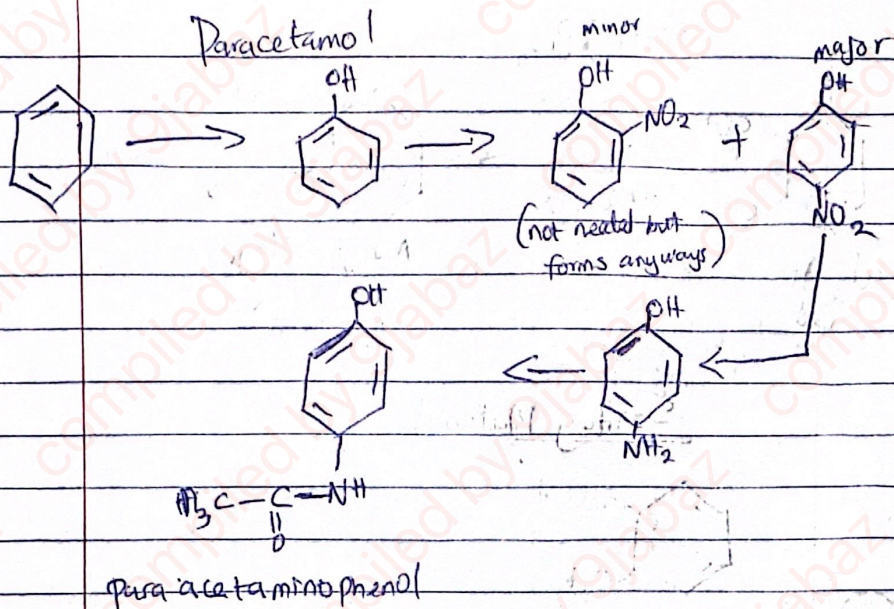 Paracetamol
minor
major
OH
OH
OH
NO2
+
NO2
(not needed but
forms anyways)
OH
OH
NH2
H3C-C-NH
O
para acetaminophenol
compiled by 9jabaz